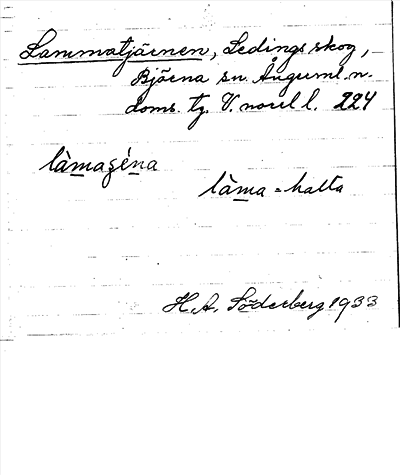 Lammatjärnen, Ledingsskog,
Bjärna sn. Ångerml. n.
doms. tg. V. norrl l. 224
làmaʒéna
làma = halta
H. A. Söderberg 1933